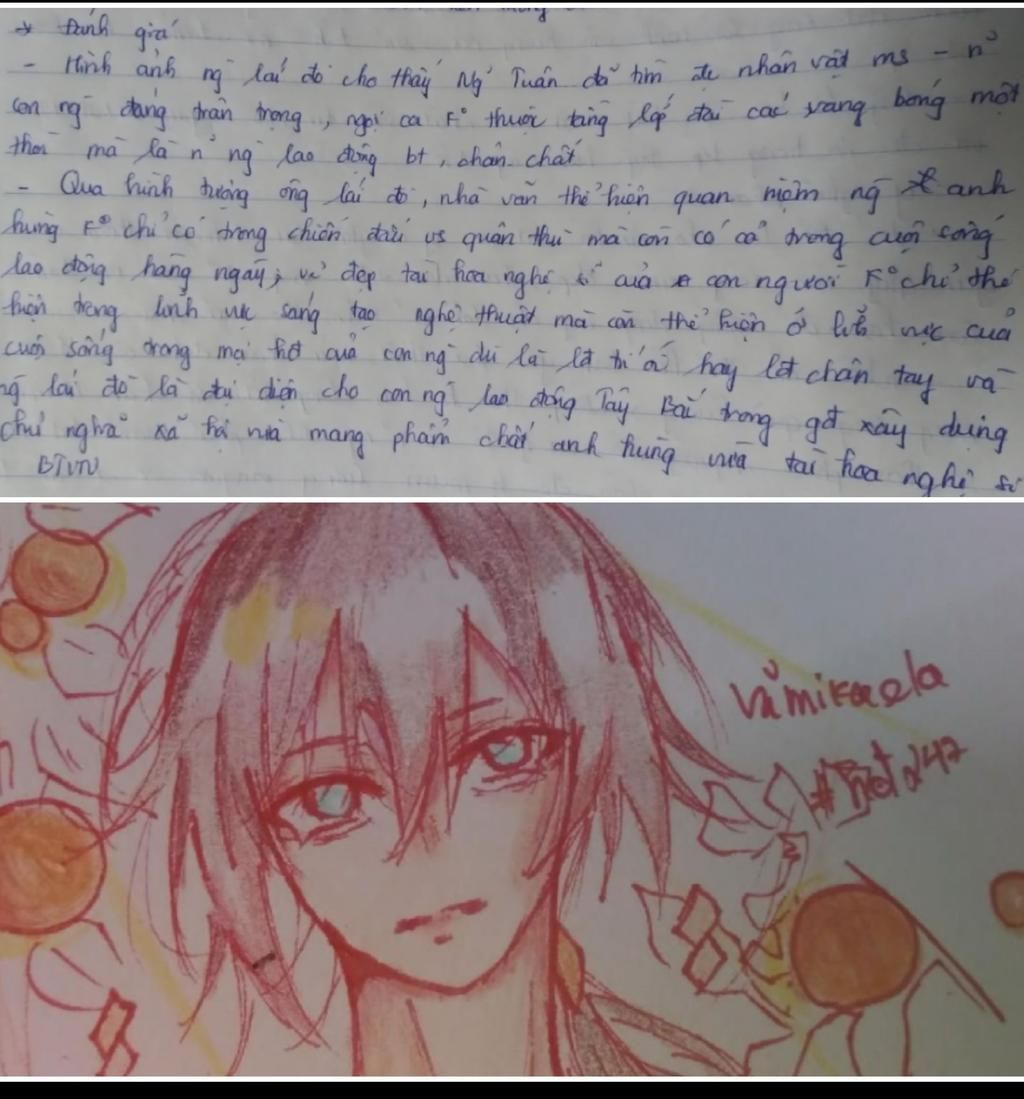 → Đánh giá
- Hình ảnh ng lái đò cho thấy Ng Tuân đã tìm đc nhân vật ms - n~
con ng đáng trân trọng, ngợi ca F° thuộc tầng lớp đài các vang bóng một
thời mà là n~ ng lao động bt, chân chất
- Qua hình tượng ông lái đò, nhà văn thể hiện quan niệm ng anh
hùng F° chỉ có trong chiến đấu vs quân thù mà còn có cả trong cuộc sống
lao động hàng ngày; vẻ đẹp tài hoa nghệ sĩ của con người F° chỉ thể
hiện trong lĩnh vực sáng tạo nghệ thuật mà còn thể hiện ở vực của
cuộc sống trong mọi hđ của con ng dù là lđ trí óc hay lđ chân tay và
ng lái đò là đại diện cho con ng lao động Tây Bắc trong gđ xây dựng
chủ nghĩa xã hội vừa mang phẩm chất anh hùng vừa tài hoa nghệ sĩ
BTVN
Vămikaela